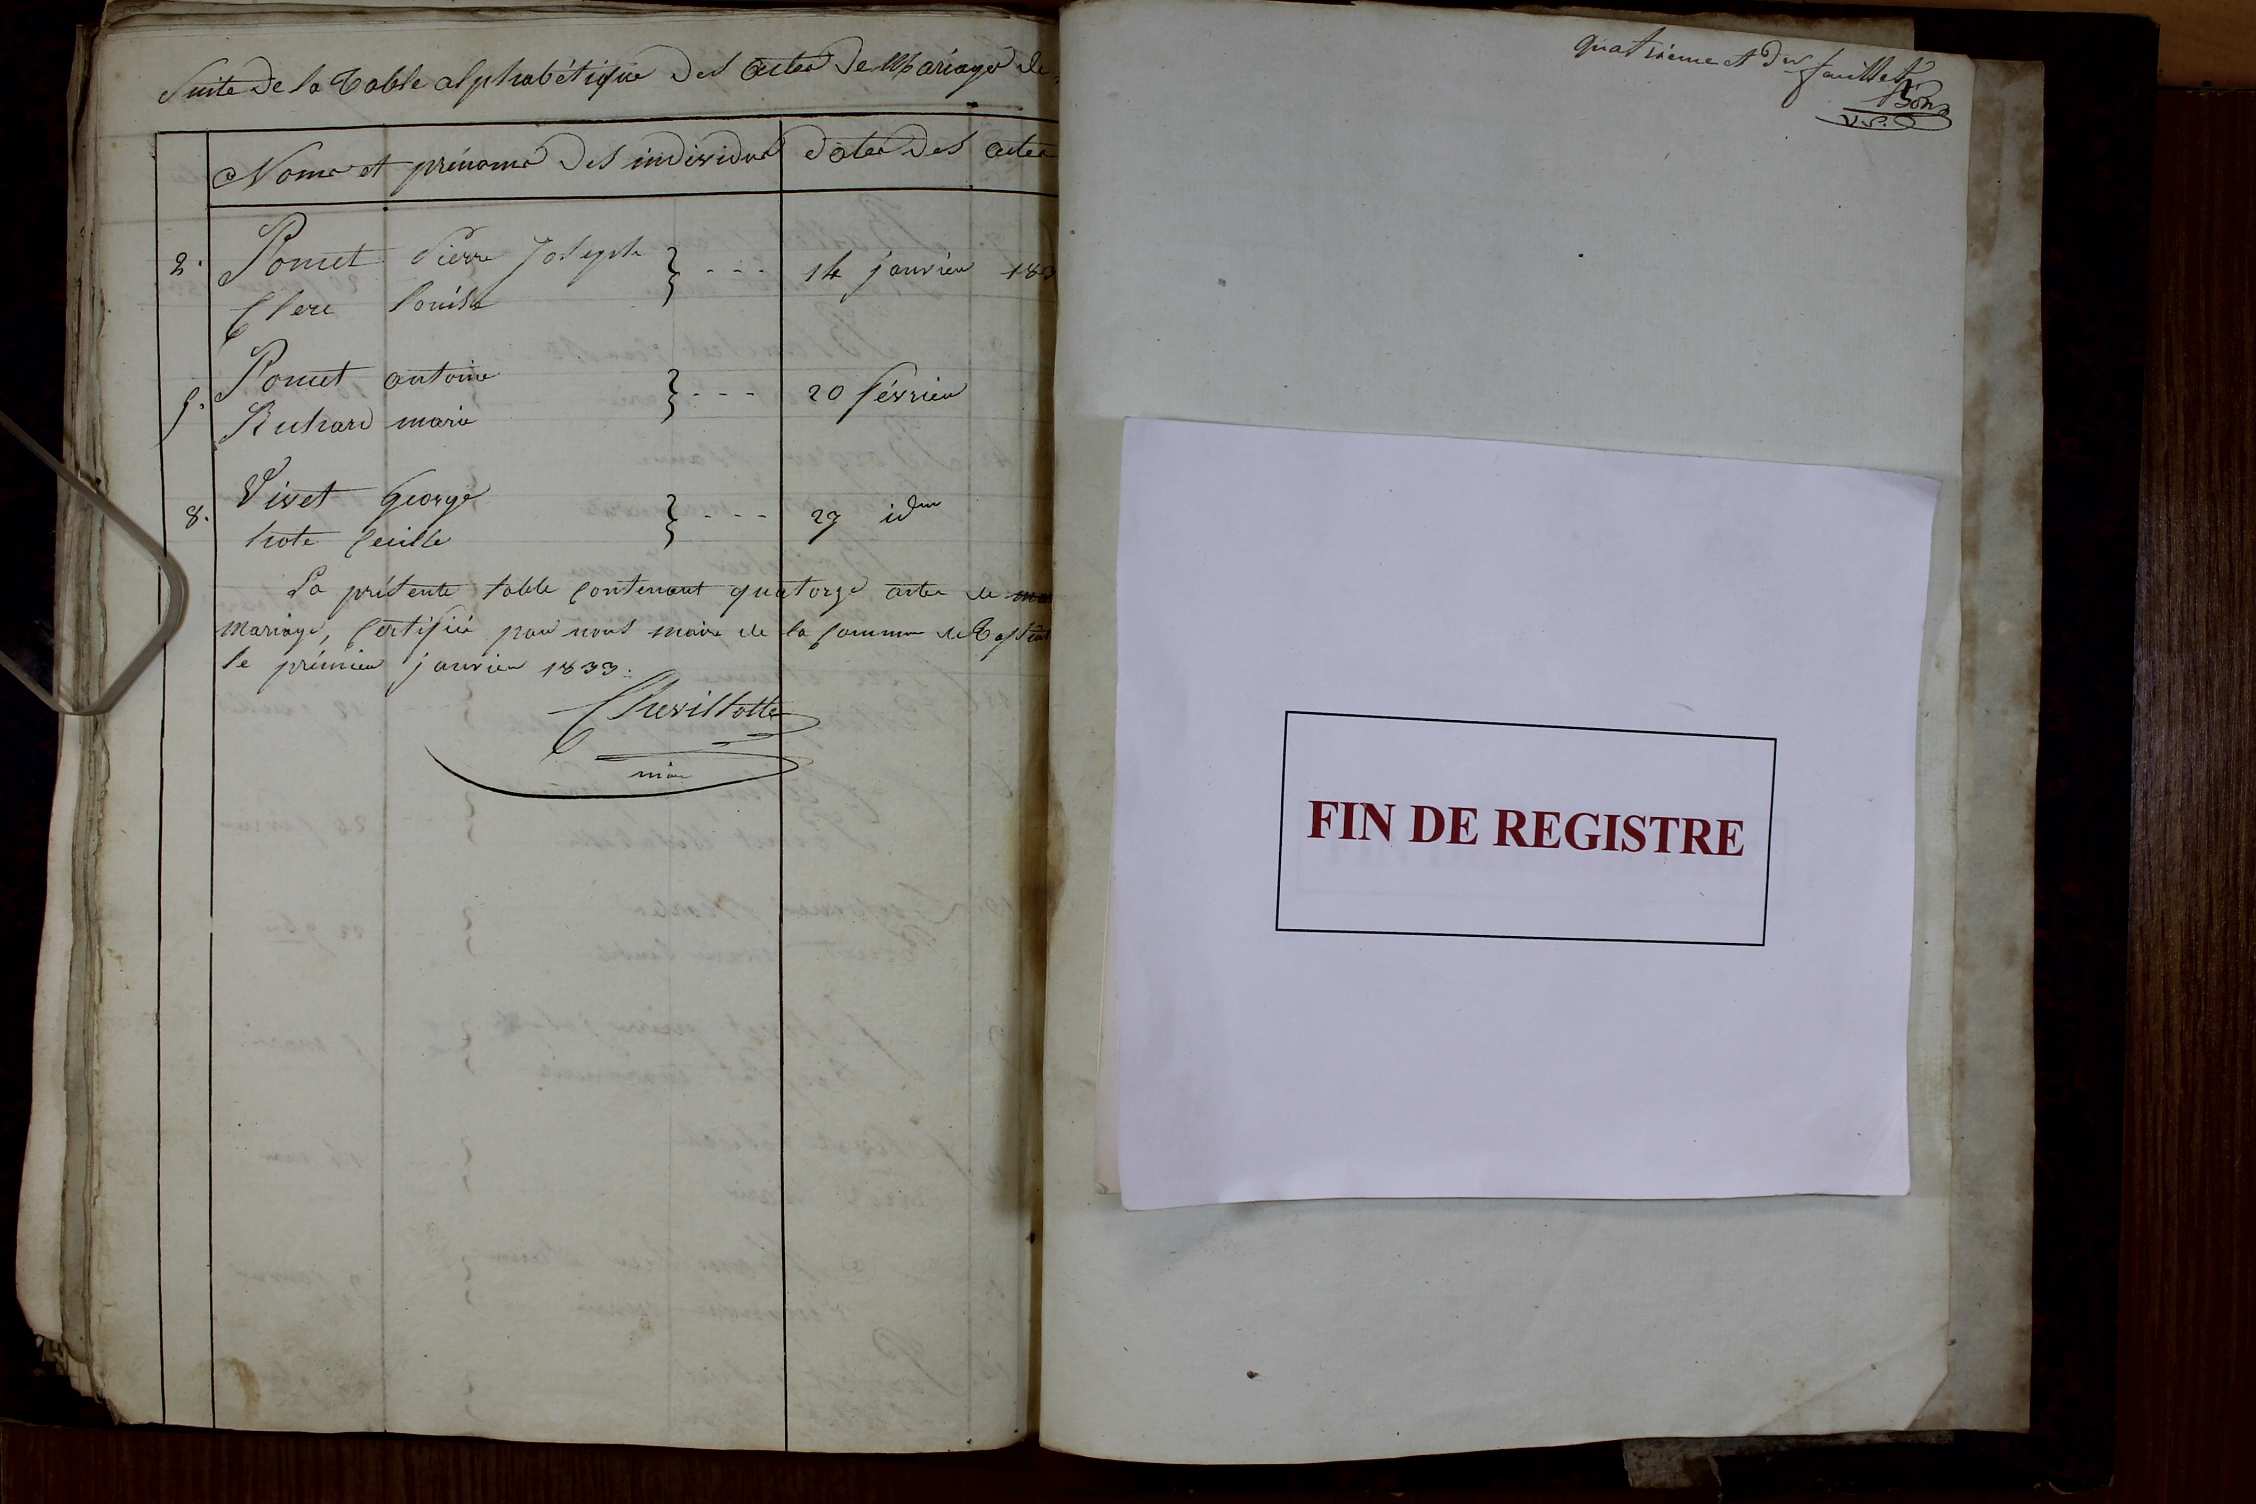 Suite de la Table alphabétique des actes de Mariage de
Noms et prénoms des individus dates des actes
2. Pomet Pierre Joseph 14 janvier 183
Clerc Louise
5. Pomet antoine 20 février
Richard marie
8. Vivet George 27 idem
hote Cecille
La présente table contenant quatorze actes de
mariage, Certifiée par nous maire de la Commune de
le prémier janvier 1833.
Chevillotte
maire
quatrième et der feuillet
Bon
V.P.
FIN DE REGISTRE